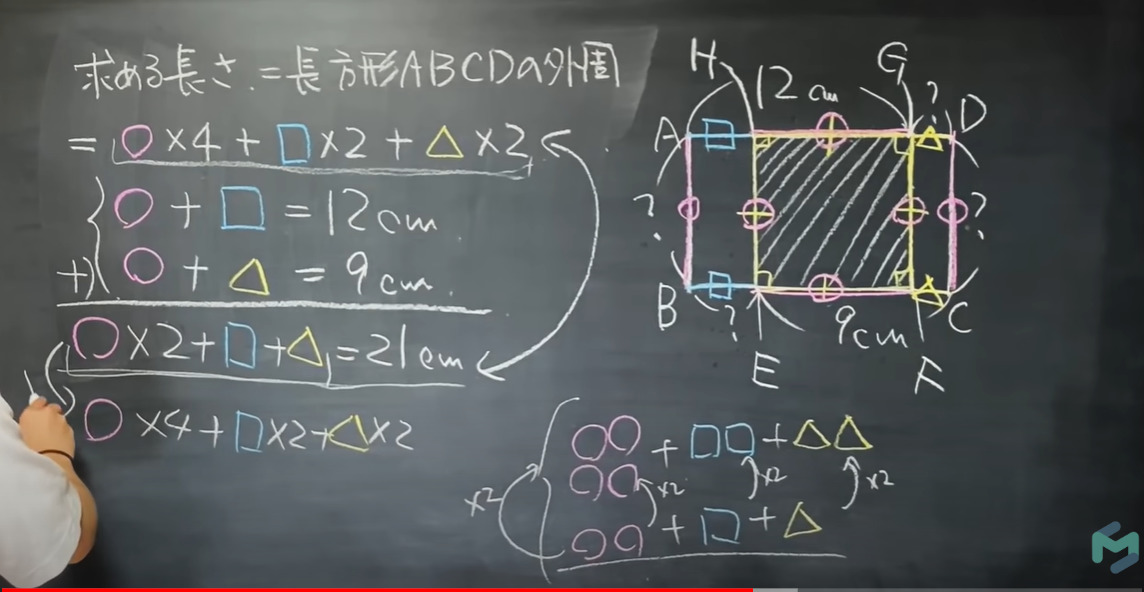 求める長さ.=長方形ABCDの外周
= ○×4+□×2+△×2
○+□=12cm
+) ○+△=9cm
○×2+□+△=21cm
○×4+□×2+△×2
H 12cm G ? D
A □ ○ △
? ○ ○ ○ ○ ?
B □ ○ △ C
? 9cm
E F
○○+□□+△△
○○ ×2 ×2 ×2
×2
○○+□+△